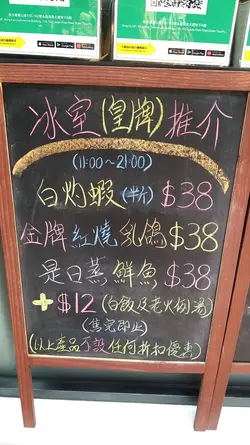 冰室(皇牌)推介
(11:00~21:00)
白灼蝦(半斤) $38
金牌紅燒乳鴿$38
是日蒸鮮魚$38
+$12(白飯及老火例湯)
(售完即止)
(以上產品不設任何折扣優惠)